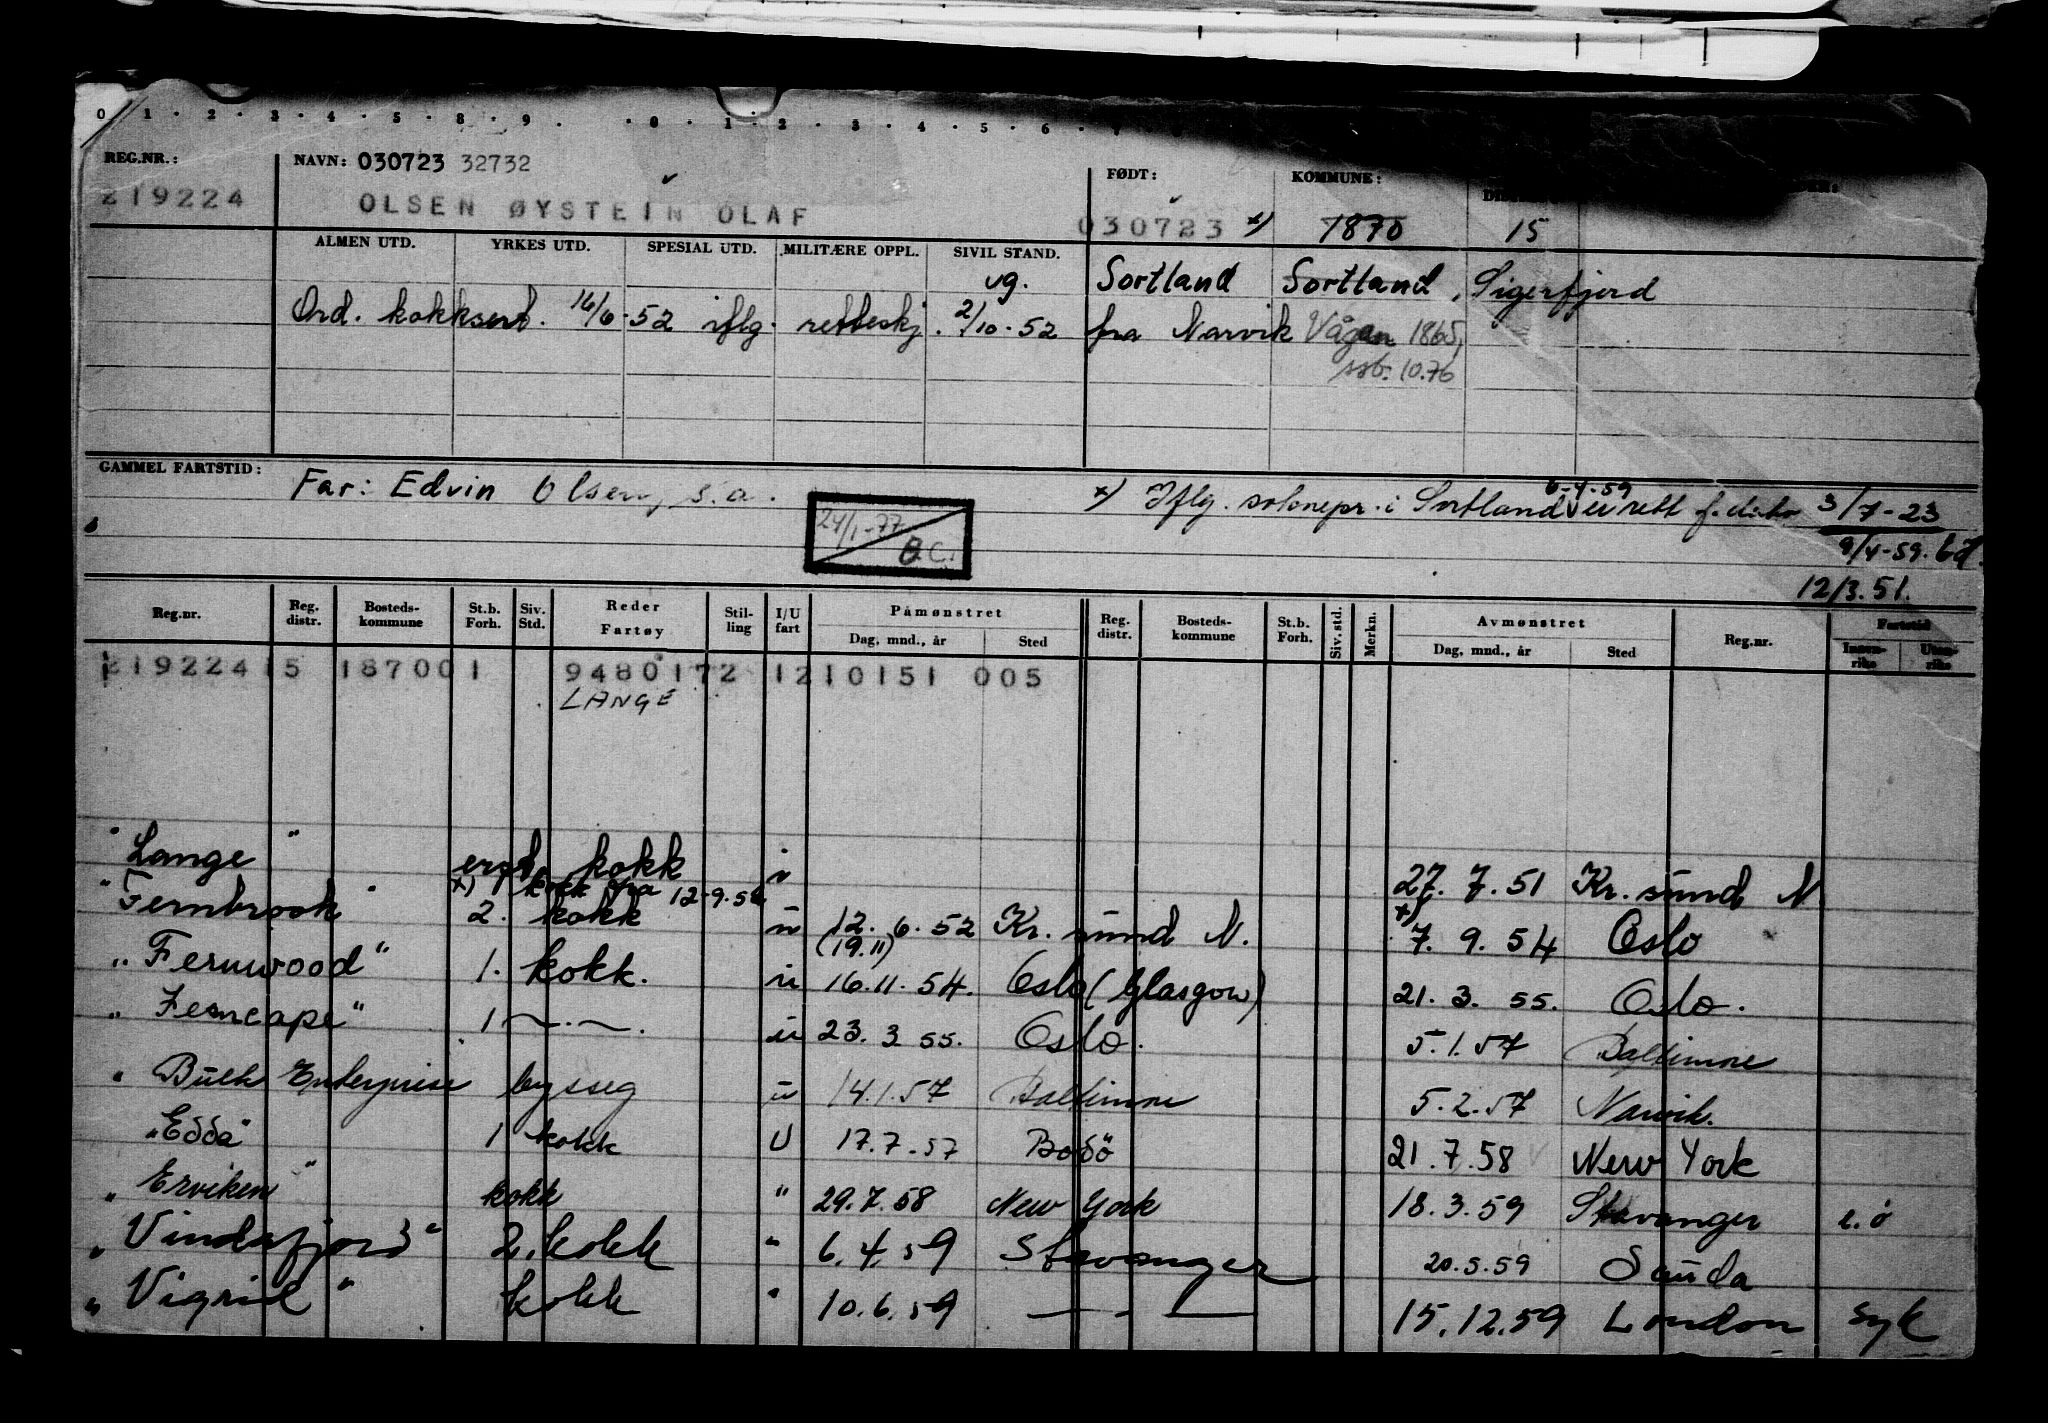 0 1 . 2 . 3 . 4 . 5 . 8 . 9 . . 0 . 1 . 2 . 3 . 4 . 5 . 6 . 7 . 8
REG.NR.: NAVN: 030723 32732 FØDT: KOMMUNE:
219224 OLSEN ØYSTEIN OLAF 030723 x) 1870 15
ALMEN UTD. YRKES UTD. SPESIAL UTD. MILITÆRE OPPL. SIVIL STAND.
ug. Sortland Sortland, Sigerfjord
Ord. kokksert. 16/6-52 iflg. retteskj. 2/10-52 fra Narvik Vågan 1865,
ssb. 10.76
GAMMEL FARTSTID: Far: Edvin Olsen, s.a.
6-4-59
x) Iflg. soknepr. i Sortland er rett f.dato 3/7-23
24/1-77 B.C.
9/4-59.
12/3.51.
Reg.nr. Reg. distr. Bosteds-kommune St.b. Forh. Siv. Std. Reder Fartøy Stil-ling I/U fart Påmønstret Dag, mnd., år Sted Reg. distr. Bosteds-kommune St.b. Forh. Siv. std. Merkn. Avmønstret Dag, mnd., år Sted Reg.nr. Fartstid Innen-riks Uten-riks
219224 15 187001 9480172 1210151 005
LANGE
"Lange" kokk i 27. 7. 51 Kr. sund N
x) 1 kokk fra 12-9-52
"Fernbrook" 2. kokk u 12. 6. 52 Kr. sund N. x) 7. 9. 54 Oslo
(19.11)
"Fernwood" 1. kokk. u 16.11.54. Oslo (Glasgow) 21. 3. 55. Oslo.
"Ferncape" 1 —.—. u 23. 3 55. Oslo. 5.1.57 Baltimore
" Bulk Enterprise bysseg u 14.1.57 Baltimore 5.2.57 Narvik.
"Edda" 1 kokk U 17.7.57 Bodö 21.7.58 New York
"Erviken" kokk " 29.7.58 New York 18.3.59 Stavanger e.ö
"Vindafjord" 2. kokk " 6.4.59 Stavanger 20.5.59 Sauda
"Vigrid" kokk " 10.6.59 — " — 15.12.59 London syk